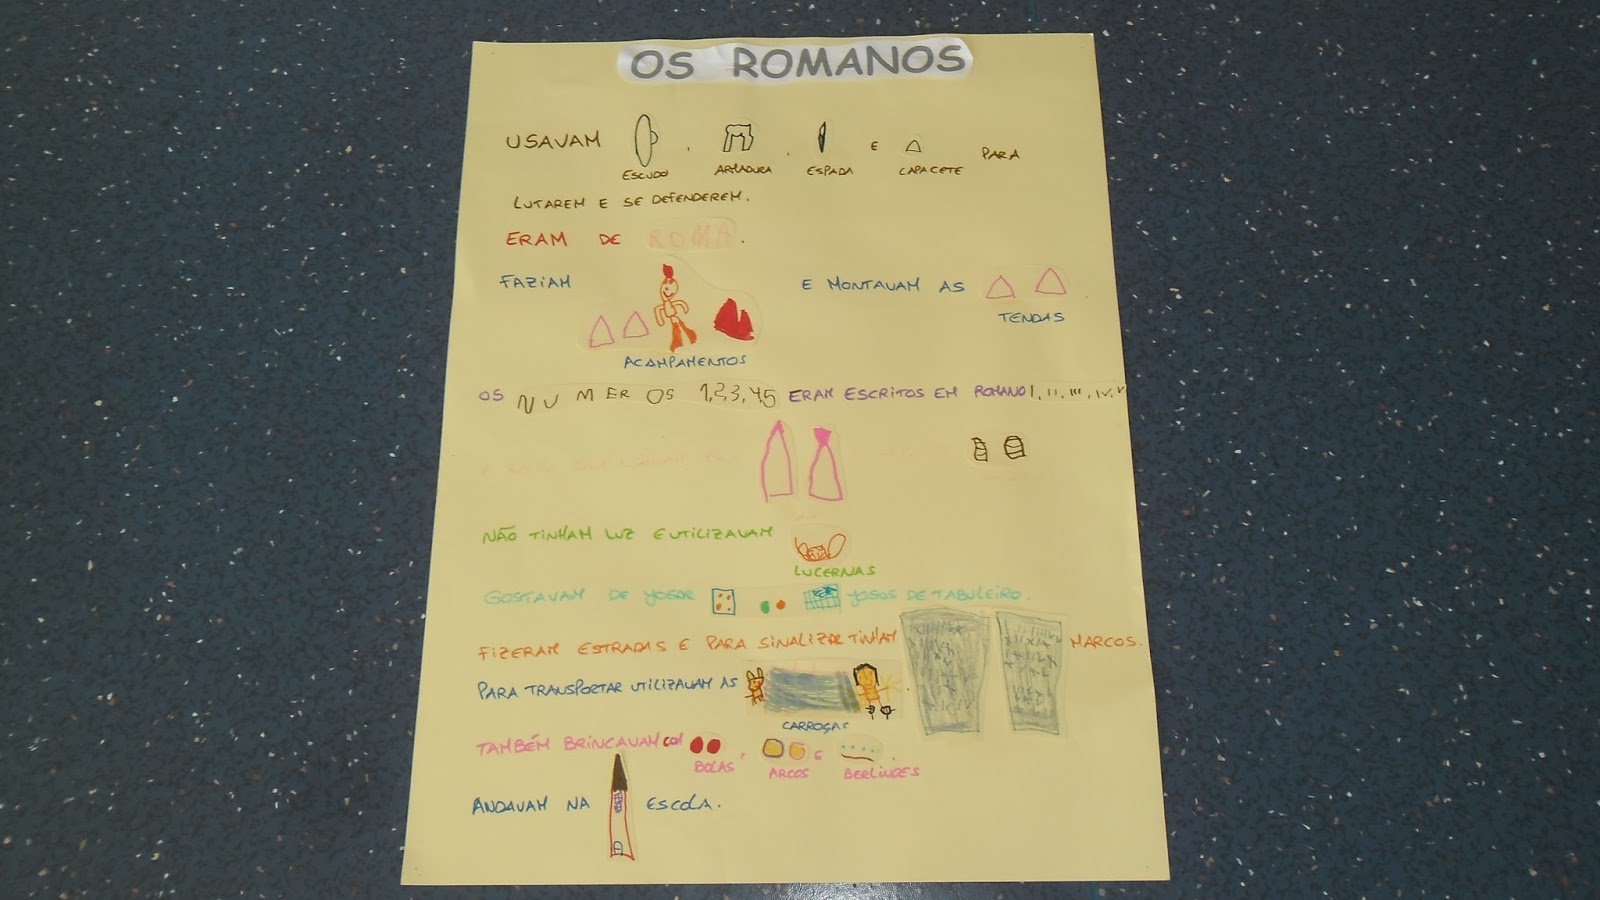 OS ROMANOS
USAVAM , , E PARA
ESCUDO ARMADURA ESPADA CAPACETE
LUTAREM E SE DEFENDEREM.
ERAM DE ROMA.
FAZIAM E MONTAVAM AS
TENDAS
ACAMPAMENTOS
OS NUMEROS 1,2,3,4,5 ERAM ESCRITOS EM ROMANO I, II, III, IV, V
NÃO TINHAM LUZ E UTILIZAVAM
LUCERNAS
GOSTAVAM DE JOGAR JOGOS DE TABULEIRO.
FIZERAM ESTRADAS E PARA SINALIZAR TINHAM MARCOS.
PARA TRANSPORTAR UTILIZAVAM AS
CARROÇAS
TAMBÉM BRINCAVAM COM , E .
BOLAS ARCOS BERLINDES
ANDAVAM NA ESCOLA.